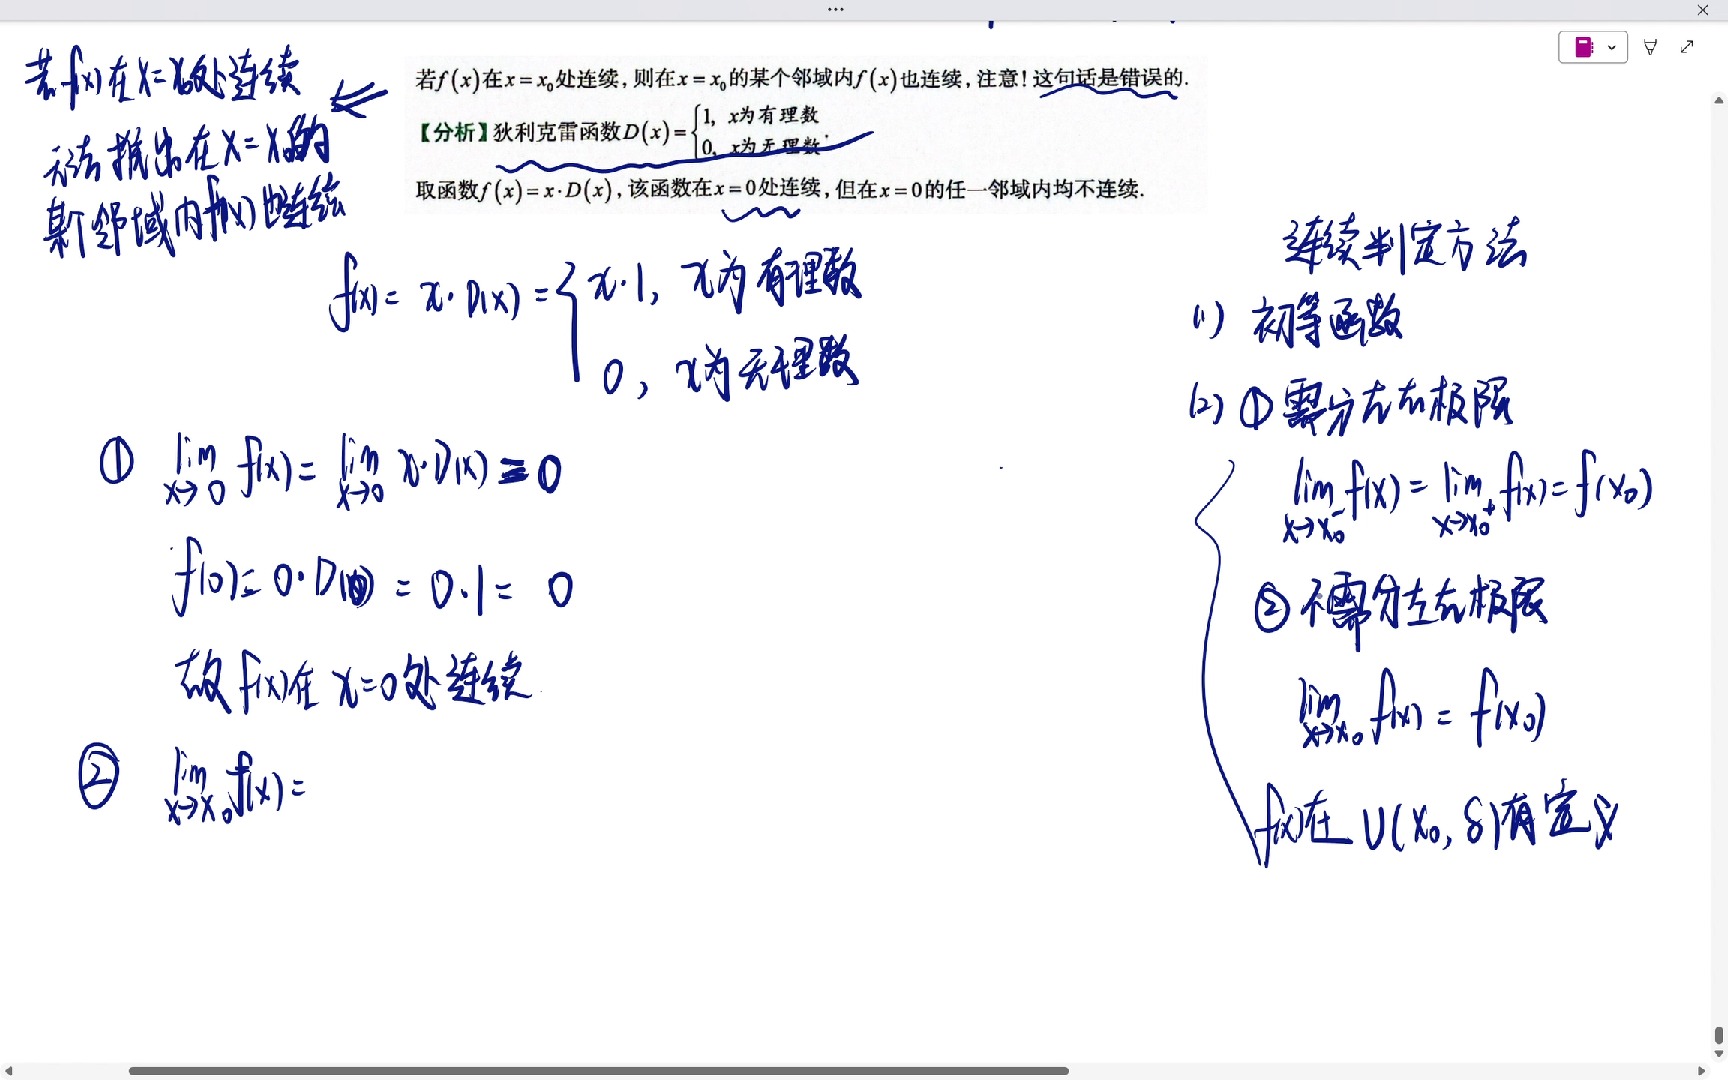 若f(x)在x=x₀处连续
无法推出在x=x₀的
某个邻域内f(x)也连续
若f(x)在x=x₀处连续,则在x=x₀的某个邻域内f(x)也连续,注意!这句话是错误的.
【分析】狄利克雷函数D(x)={1, x为有理数
0, x为无理数.
取函数f(x)=x·D(x),该函数在x=0处连续,但在x=0的任一邻域内均不连续.
f(x)= x·D(x) = {x·1, x为有理数
0, x为无理数
① lim_{x→0} f(x)= lim_{x→0} x·D(x) = 0
f(0)= 0·D(0) = 0·1= 0
故f(x)在 x=0处连续
② lim_{x→x₀} f(x)=
连续判定方法
(1) 初等函数
(2) ①需分左右极限
lim_{x→x₀⁻} f(x) = lim_{x→x₀⁺} f(x) = f(x₀)
②不需分左右极限
lim_{x→x₀} f(x) = f(x₀)
f(x)在 U(x₀, δ)有定义